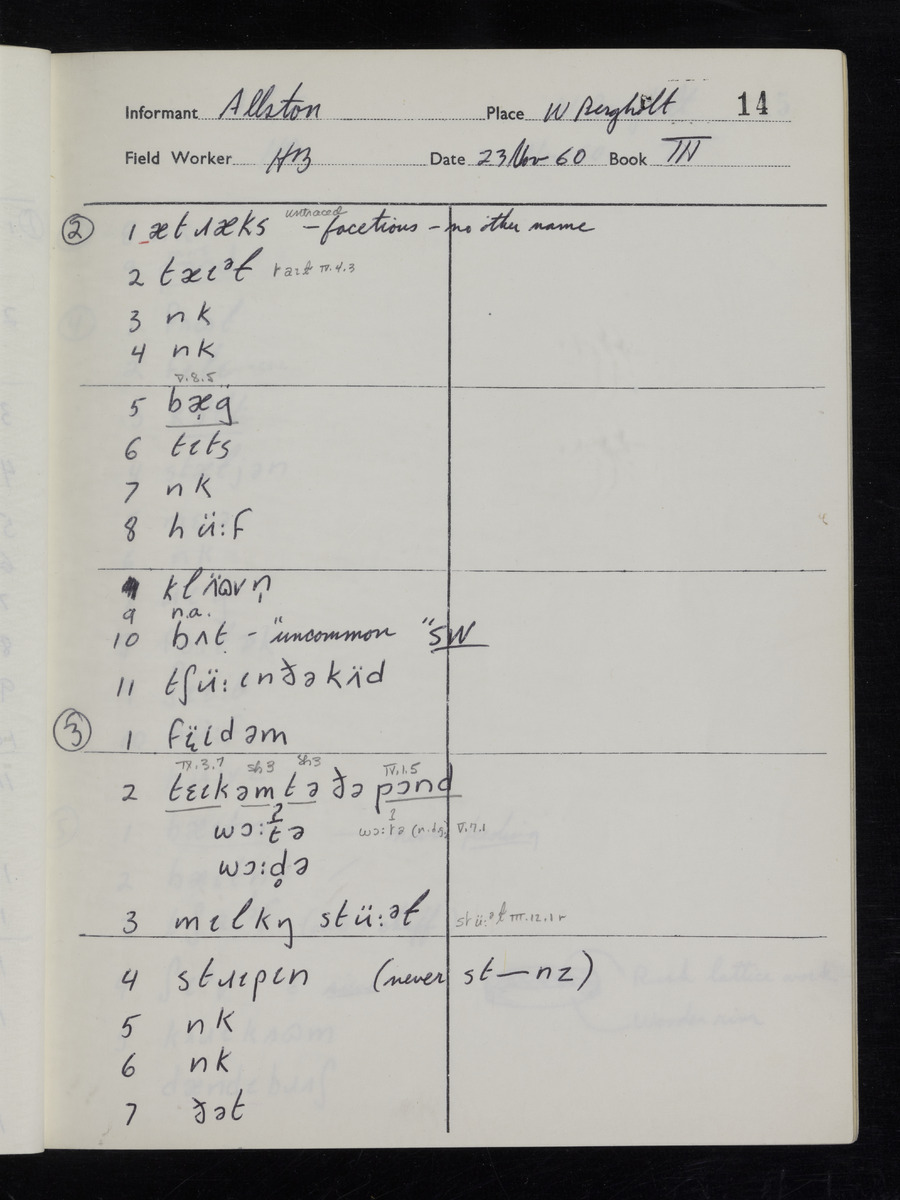 Informant Allston Place W Bergholt 14
Field Worker HB Date 23 Nov 60 Book III
untraced
② 1 ætɹæks – facetious – no other name
2 tæɪᵊɫ taɪɫ IV.4.3
3 nk
4 nk
V.8.5
5 bæ̣g̈
6 tɪts
7 nk
8 hü:f
klʌ̈ɷvn̩
9 n.a.
10 bʌt – "uncommon" SW
11 tʃü:ɪnðəkʌ̈d
③ 1 fɪ̈ɪdəm
IX.3.7 sh3 sh3 IV.1.5
2 tɛɪkəmtəðəpɔnd
wɔ:t̬ə wɔ:tə (n.dg) V.7.1
wɔ:d̥ə
3 mɪlkŋ stü:ᵊɫ stü:ᵊɫ III.12.1 r
4 stɹɪpɪn (never st—nz)
5 nk
6 nk
7 ðət